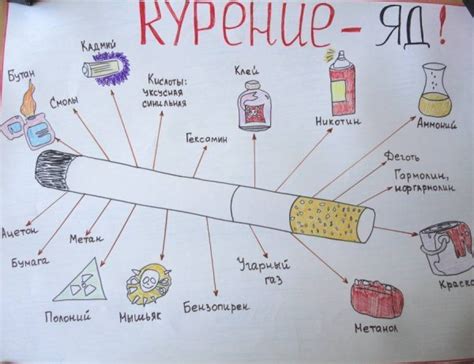 КУРЕНИЕ - ЯД!
Бутан
Кадмий
Смолы
Кислоты:
уксусная
синильная
Клей
Гексамин
Никотин
Аммоний
Деготь
Гармолин,
норгармолин
Ацетон
Бумага
Метан
Полоний
Мышьяк
Бензопирен
Угарный
газ
Метанол
Краска